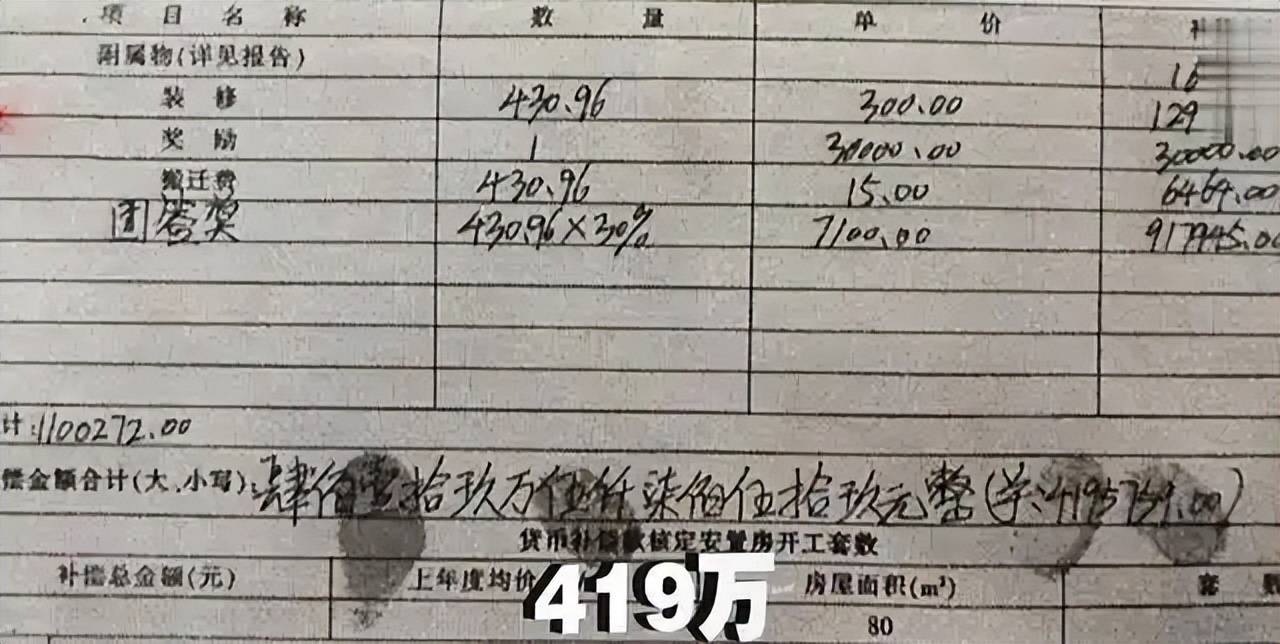 项目名称 数量 单价 补
附属物(详见报告) 16
装修 430.96 300.00 129
奖励 1 30000.00 30000.00
搬迁费 430.96 15.00 6464.00
团签奖 430.96×30% 7100.00 917945.00
计:1100272.00
偿金额合计(大、小写):肆佰壹拾玖万伍仟柒佰伍拾玖元整(￥:4195759.00)
货币补偿款核定安置房开工套数
补偿总金额(元) 上年度均价 房屋面积(m²) 套数
419万
80